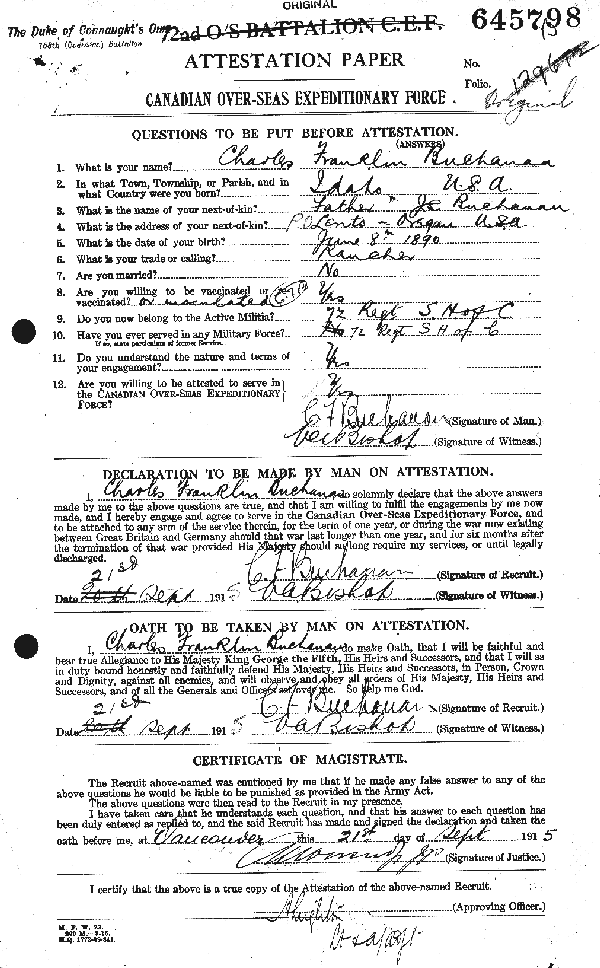 ORIGINAL
The Duke of Connaught's Own 72nd O/S BATTALION C.E.F. 645798
158th (Overseas) Battalion
ATTESTATION PAPER No.
Folio.
CANADIAN OVER-SEAS EXPEDITIONARY FORCE. Original
QUESTIONS TO BE PUT BEFORE ATTESTATION.
(ANSWERS)
1. What is your name? Charles Franklin Buchanan
2. In what Town, Township, or Parish, and in
what Country were you born? Idaho U.S.A
3. What is the name of your next-of-kin? Father Buchanan
4. What is the address of your next-of-kin? P O Lents - Oregon USA
5. What is the date of your birth? June 8th 1890
6. What is your trade or calling? Rancher
7. Are you married? No
8. Are you willing to be vaccinated or re-
vaccinated? or inoculated Yes
9. Do you now belong to the Active Militia? 72 Regt S H of C
10. Have you ever served in any Military Force? No 72 Regt S H of C
If so, state particulars of former Service.
11. Do you understand the nature and terms of
your engagement? Yes
12. Are you willing to be attested to serve in
the CANADIAN OVER-SEAS EXPEDITIONARY
FORCE? Yes
C F Buchanan (Signature of Man.)
V A Bishop (Signature of Witness.)
DECLARATION TO BE MADE BY MAN ON ATTESTATION.
I, Charles Franklin Buchanan do solemnly declare that the above answers
made by me to the above questions are true, and that I am willing to fulfil the engagements by me now
made, and I hereby engage and agree to serve in the Canadian Over-Seas Expeditionary Force, and
to be attached to any arm of the service therein, for the term of one year, or during the war now existing
between Great Britain and Germany should that war last longer than one year, and for six months after
the termination of that war provided His Majesty should so long require my services, or until legally
discharged.
21st C F Buchanan (Signature of Recruit.)
Date 20th Sept 1915 V A Bishop (Signature of Witness.)
OATH TO BE TAKEN BY MAN ON ATTESTATION.
I, Charles Franklin Buchanan do make Oath, that I will be faithful and
bear true Allegiance to His Majesty King George the Fifth, His Heirs and Successors, and that I will as
in duty bound honestly and faithfully defend His Majesty, His Heirs and Successors, in Person, Crown
and Dignity, against all enemies, and will observe and obey all orders of His Majesty, His Heirs and
Successors, and of all the Generals and Officers set over me. So help me God.
21st C F Buchanan (Signature of Recruit.)
Date 20th Sept 1915 V A Bishop (Signature of Witness.)
CERTIFICATE OF MAGISTRATE.
The Recruit above-named was cautioned by me that if he made any false answer to any of the
above questions he would be liable to be punished as provided in the Army Act.
The above questions were then read to the Recruit in my presence.
I have taken care that he understands each question, and that his answer to each question has
been duly entered as replied to, and the said Recruit has made and signed the declaration and taken the
oath before me, at Vancouver this 21st day of Sept 1915
(Signature of Justice.)
I certify that the above is a true copy of the Attestation of the above-named Recruit.
(Approving Officer.)
M. F. W. 23.
H.Q. 1772-39-241.